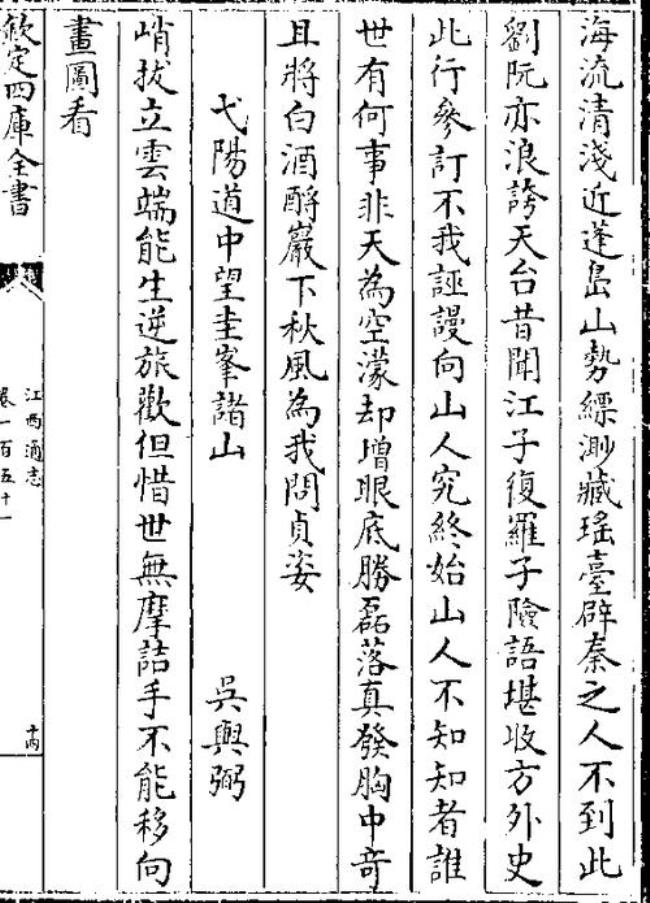 海流清淺近蓬島山勢縹渺藏瑤臺辟秦之人不到此
劉阮亦浪誇天台昔聞江子復羅子險語堪收方外史
此行參訂不我誣謾向山人究終始山人不知知者誰
世有何事非天為空濛却增眼底勝磊落真發胸中奇
且將白酒酹巖下秋風為我問貞姿
弋陽道中望圭峯諸山 吳與弼
峭拔立雲端能生逆旅歡但惜世無摩詰手不能移向
畫圖看
欽定四庫全書
江西通志
卷一百五十一
十四